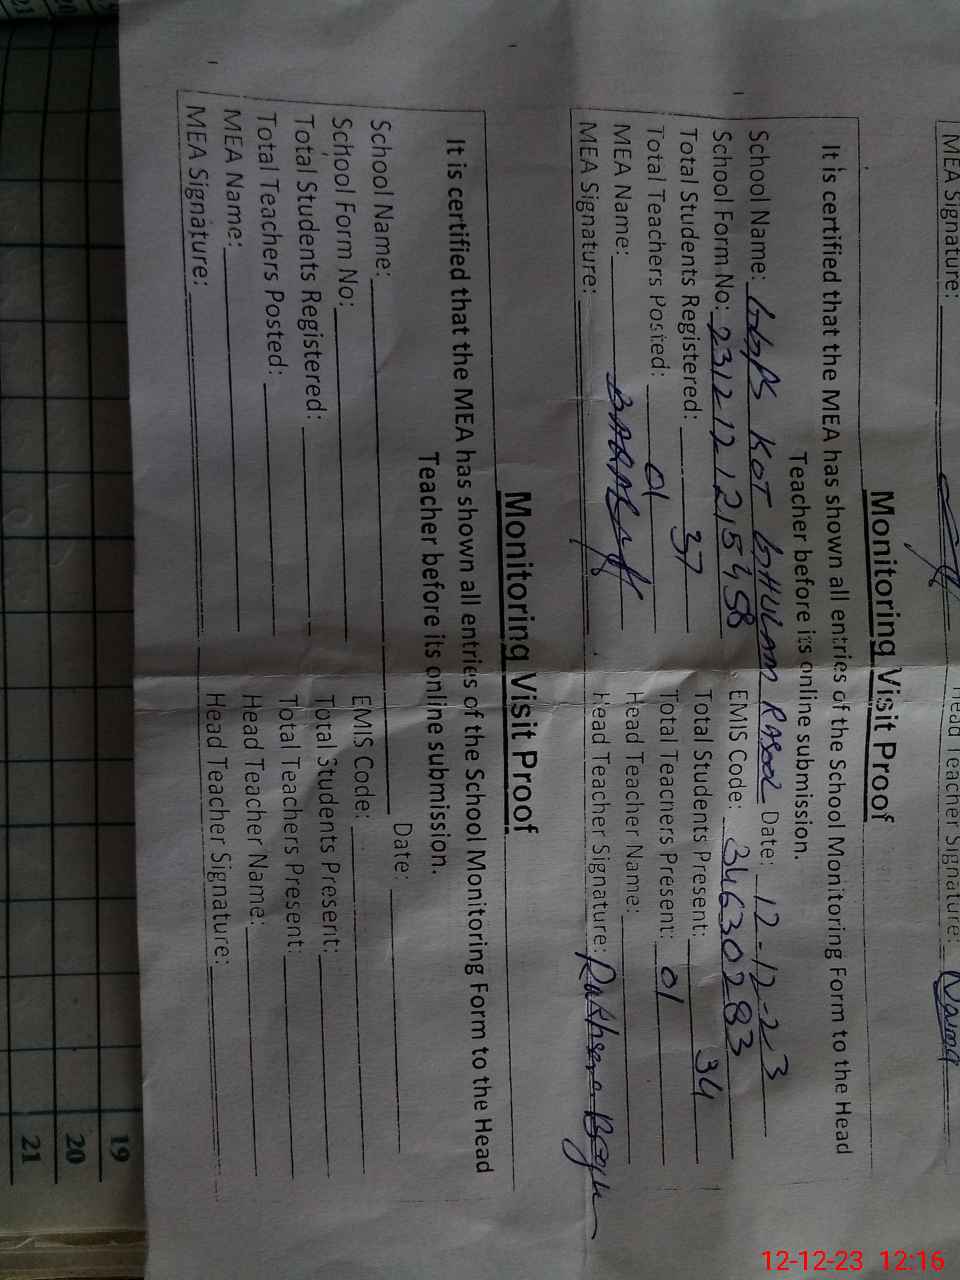 MEA Signature:
Head Teacher Signature: Naima
Monitoring Visit Proof
It is certified that the MEA has shown all entries of the School Monitoring Form to the Head
Teacher before its online submission.
School Name: GGPS KOT GHULAM RASOOL Date: 12-12-23
School Form No: 2312121215458 EMIS Code: 34630283
Total Students Registered: 37 Total Students Present: 34
Total Teachers Posted: 01 Total Teachers Present: 01
MEA Name: Head Teacher Name:
MEA Signature: Head Teacher Signature:
Monitoring Visit Proof
It is certified that the MEA has shown all entries of the School Monitoring Form to the Head
Teacher before its online submission.
School Name: Date:
School Form No: EMIS Code:
Total Students Registered: Total Students Present:
Total Teachers Posted: Total Teachers Present:
MEA Name: Head Teacher Name:
MEA Signature: Head Teacher Signature:
19
20
21
20
21
12-12-23 12:16